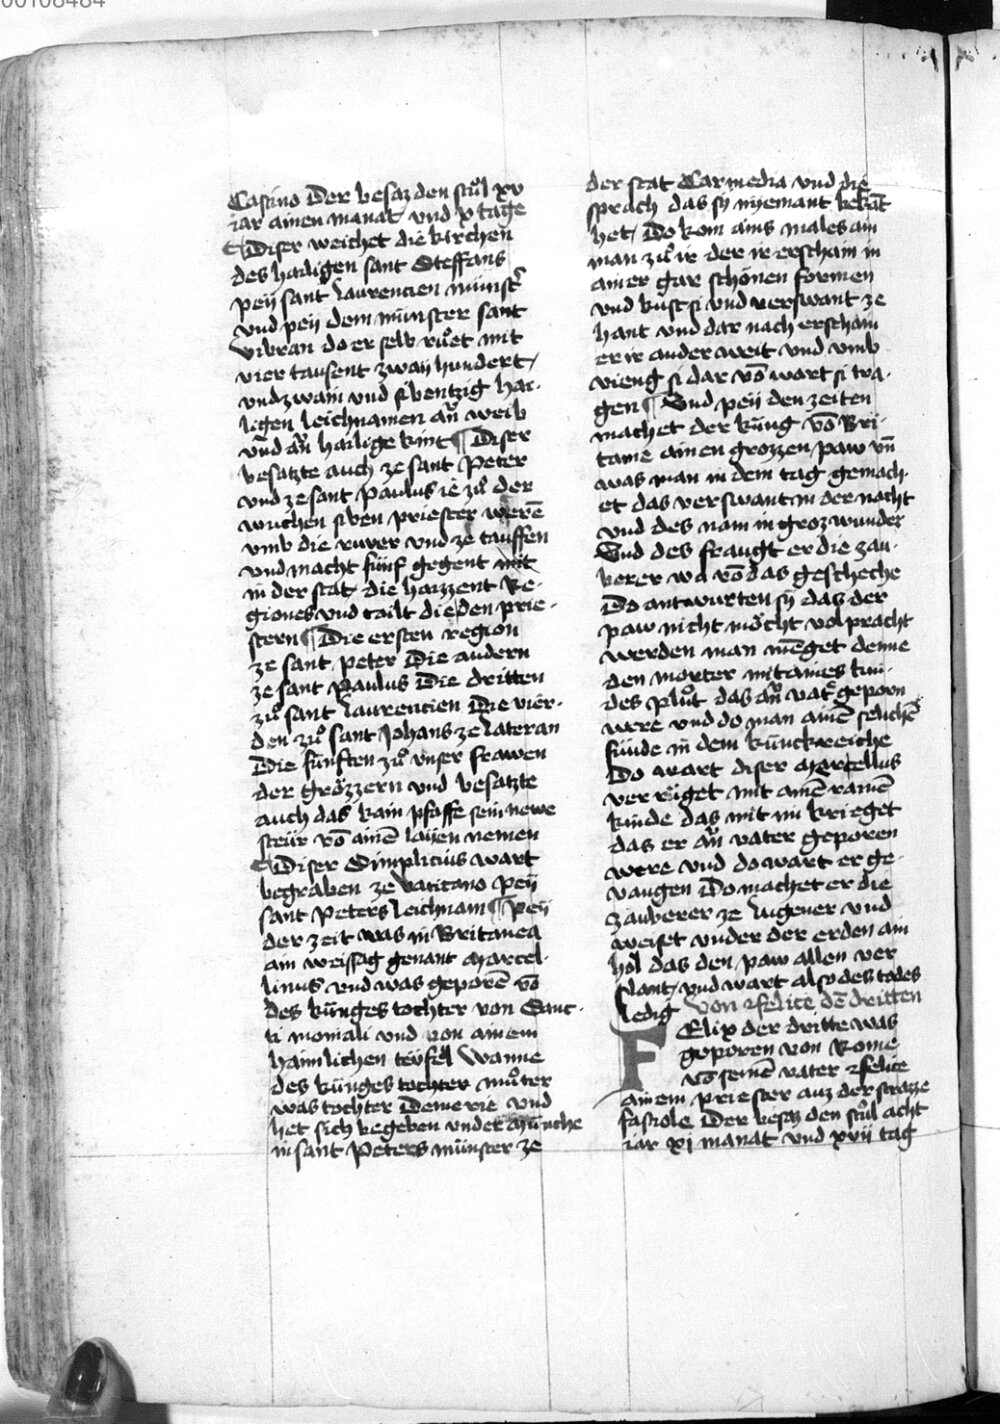 00108484
Castino Der besaz den stůl xv
iar ainen manat vnd x tage
¶ Diser weichet die kirchen
des hailigen sant Steffans
peÿ sant laurencien münst̉
vnd peÿ dem münster sant
vibran do er selb růet mit
vier tausent zwaÿ hundert
vnd zwain vnd sibentzig hai-
ligen leichnamen an̄ weib
vnd an̄ hailige kint ¶ Diser
besatzte auch ze sant Peter
vnd ze sant paulus ie zů der
wuchen siben priester werē
vmb die ruwer vnd ze tauffen
vnd macht fünf gegent mit
in der stat die haizzent Re-
giones vnd tailt die den prie-
stern ¶ Die ersten region
ze sant peter Die andern
ze sant Paulus Die dritten
zů sant laurencien Die vier-
den zů sant Johans ze lateran
Die fünften zů vnser frawen
der grözzern vnd besatzte
auch das kain pfaffe sein newe
steür vō ainē laÿen nemen
¶ Diser Simplicius wart
begraben ze vaticano peÿ
sant Peters leichnam ¶ peÿ
der zeit was in Britanea
ain weissag genant Marcel-
linus vnd was geporē vō
des künges tochter von Sanc-
ti moniali vnd von ainem
haimlichen teüfel wanne
des künges tochter můter
was tochter Demerie vnd
het sich begeben vnder münche
in sant Peters münster ze
der stat Carmedia vnd die
sprach das sÿ nÿemant bekāt
het / Do kom ains males ain
man zů ir der ir erschain in
ainer gar schönen formen
vnd kust si vnd verswant ze
hant vnd dar nach erschain
er ir ander weit vnd vmb
vieng si dar vō wart si tra-
gen ¶ Vnd peÿ den zeiten
machet der küng vō Bri-
tanie ainen grozzen paw vn̄
was man in dem tag gemach-
et das verswant in der nacht
vnd des nam in groz wunder
Vnd des fraugt er die zau-
berer wa vō das gescheche
Do antwurten sÿ das der
paw nicht möcht volpracht
werden man mēget denne
den morter mit aines kin-
des plůt das an̄ vat̉ geporn
were vnd do man ainē sölichē
fünde in dem künckreiche
Do wart diser Marcellus
ver rüget mit ainē rainē
kinde das mit im krieget
das er an̄ vater geporen
were vnd do wart er ge-
vangen Do machet er die
zauberer ze lugener vnd
weiset vnder der erden ain
hol das den paw allen ver
slant vnd wart also des todes
ledig von Felice dē dritten
Felix der dritte was
geporen von Rome
vō seinē vater Felice
ainem priester auz der strazze
fasciole Der besaz den stůl acht
iar xj manat vnd xvij tag